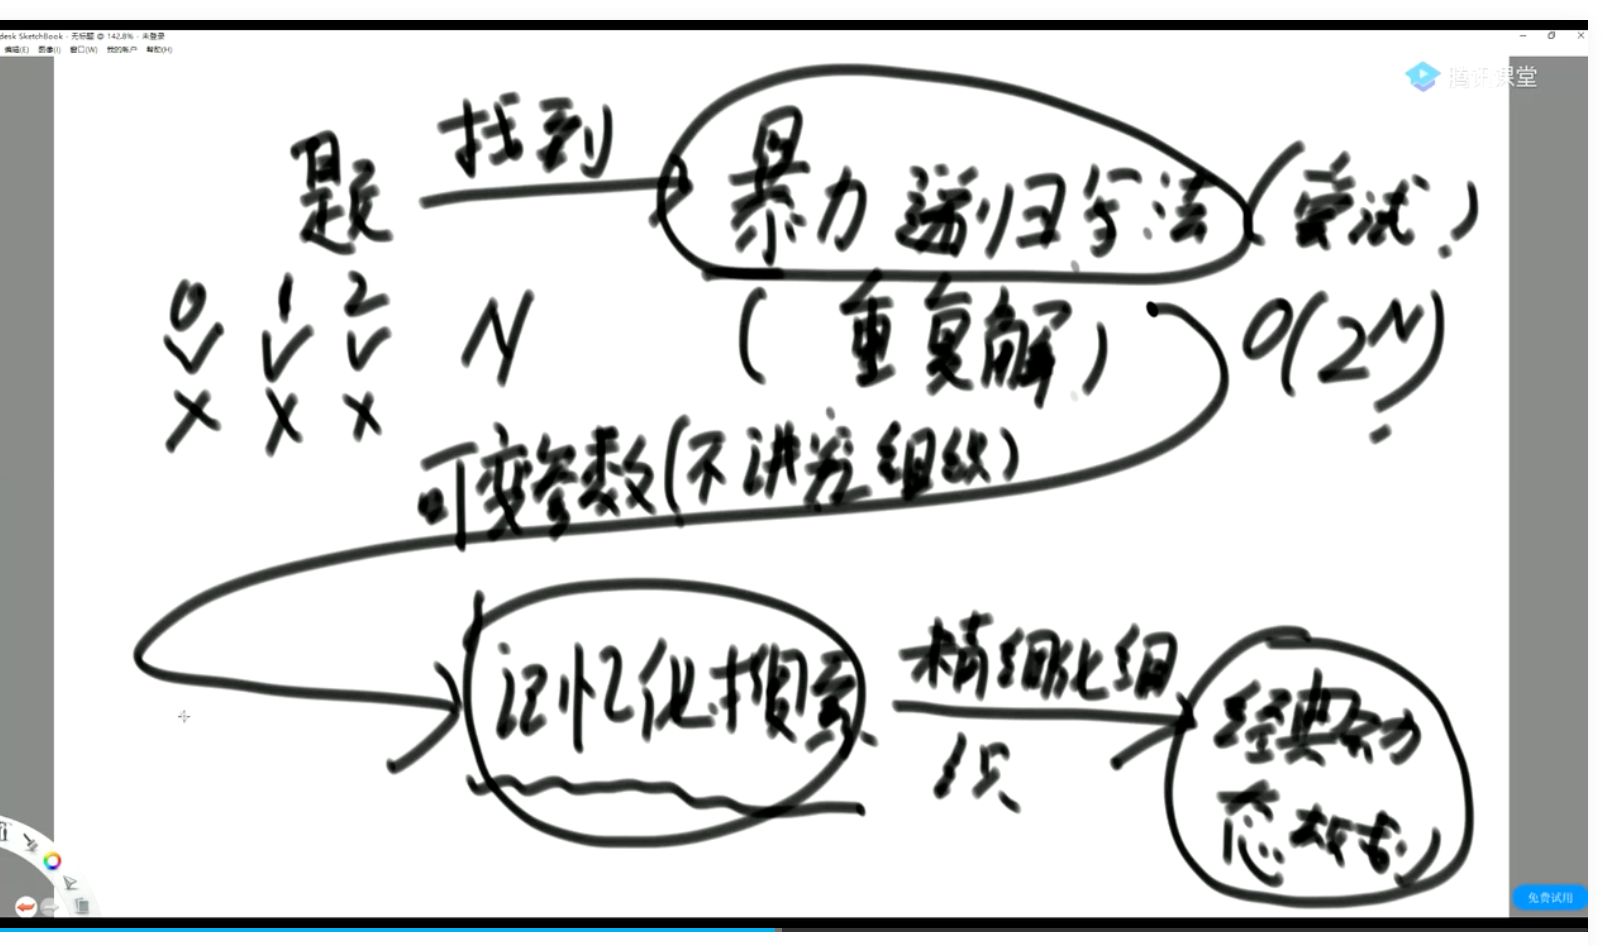 desk SketchBook - 无标题 @ 142.8% - 未登录
编辑(E) 图像(I) 窗口(W) 我的帐户 帮助(H)
腾讯课堂
题 找到 暴力递归写法 (尝试)
0 1 2 N (重复解) O(2^N)
可变参数(不讲究组织)
记忆化搜索 精细化组织 经典动态规划
免费试用